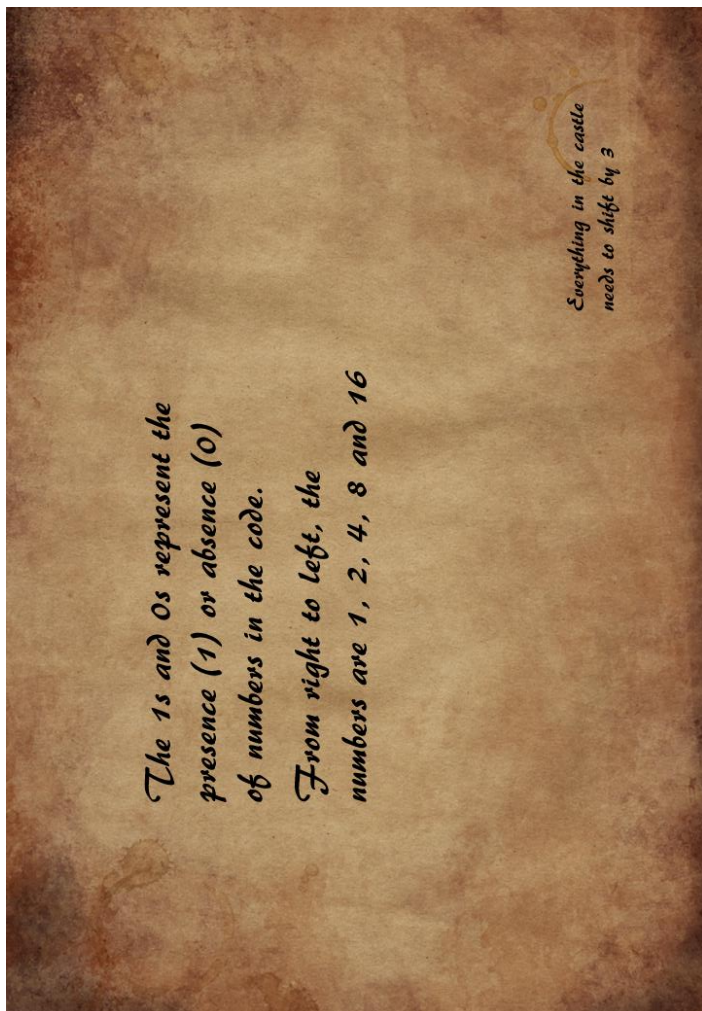 The 1s and 0s represent the
presence (1) or absence (0)
of numbers in the code.
From right to left, the
numbers are 1, 2, 4, 8 and 16
Everything in the castle
needs to shift by 3